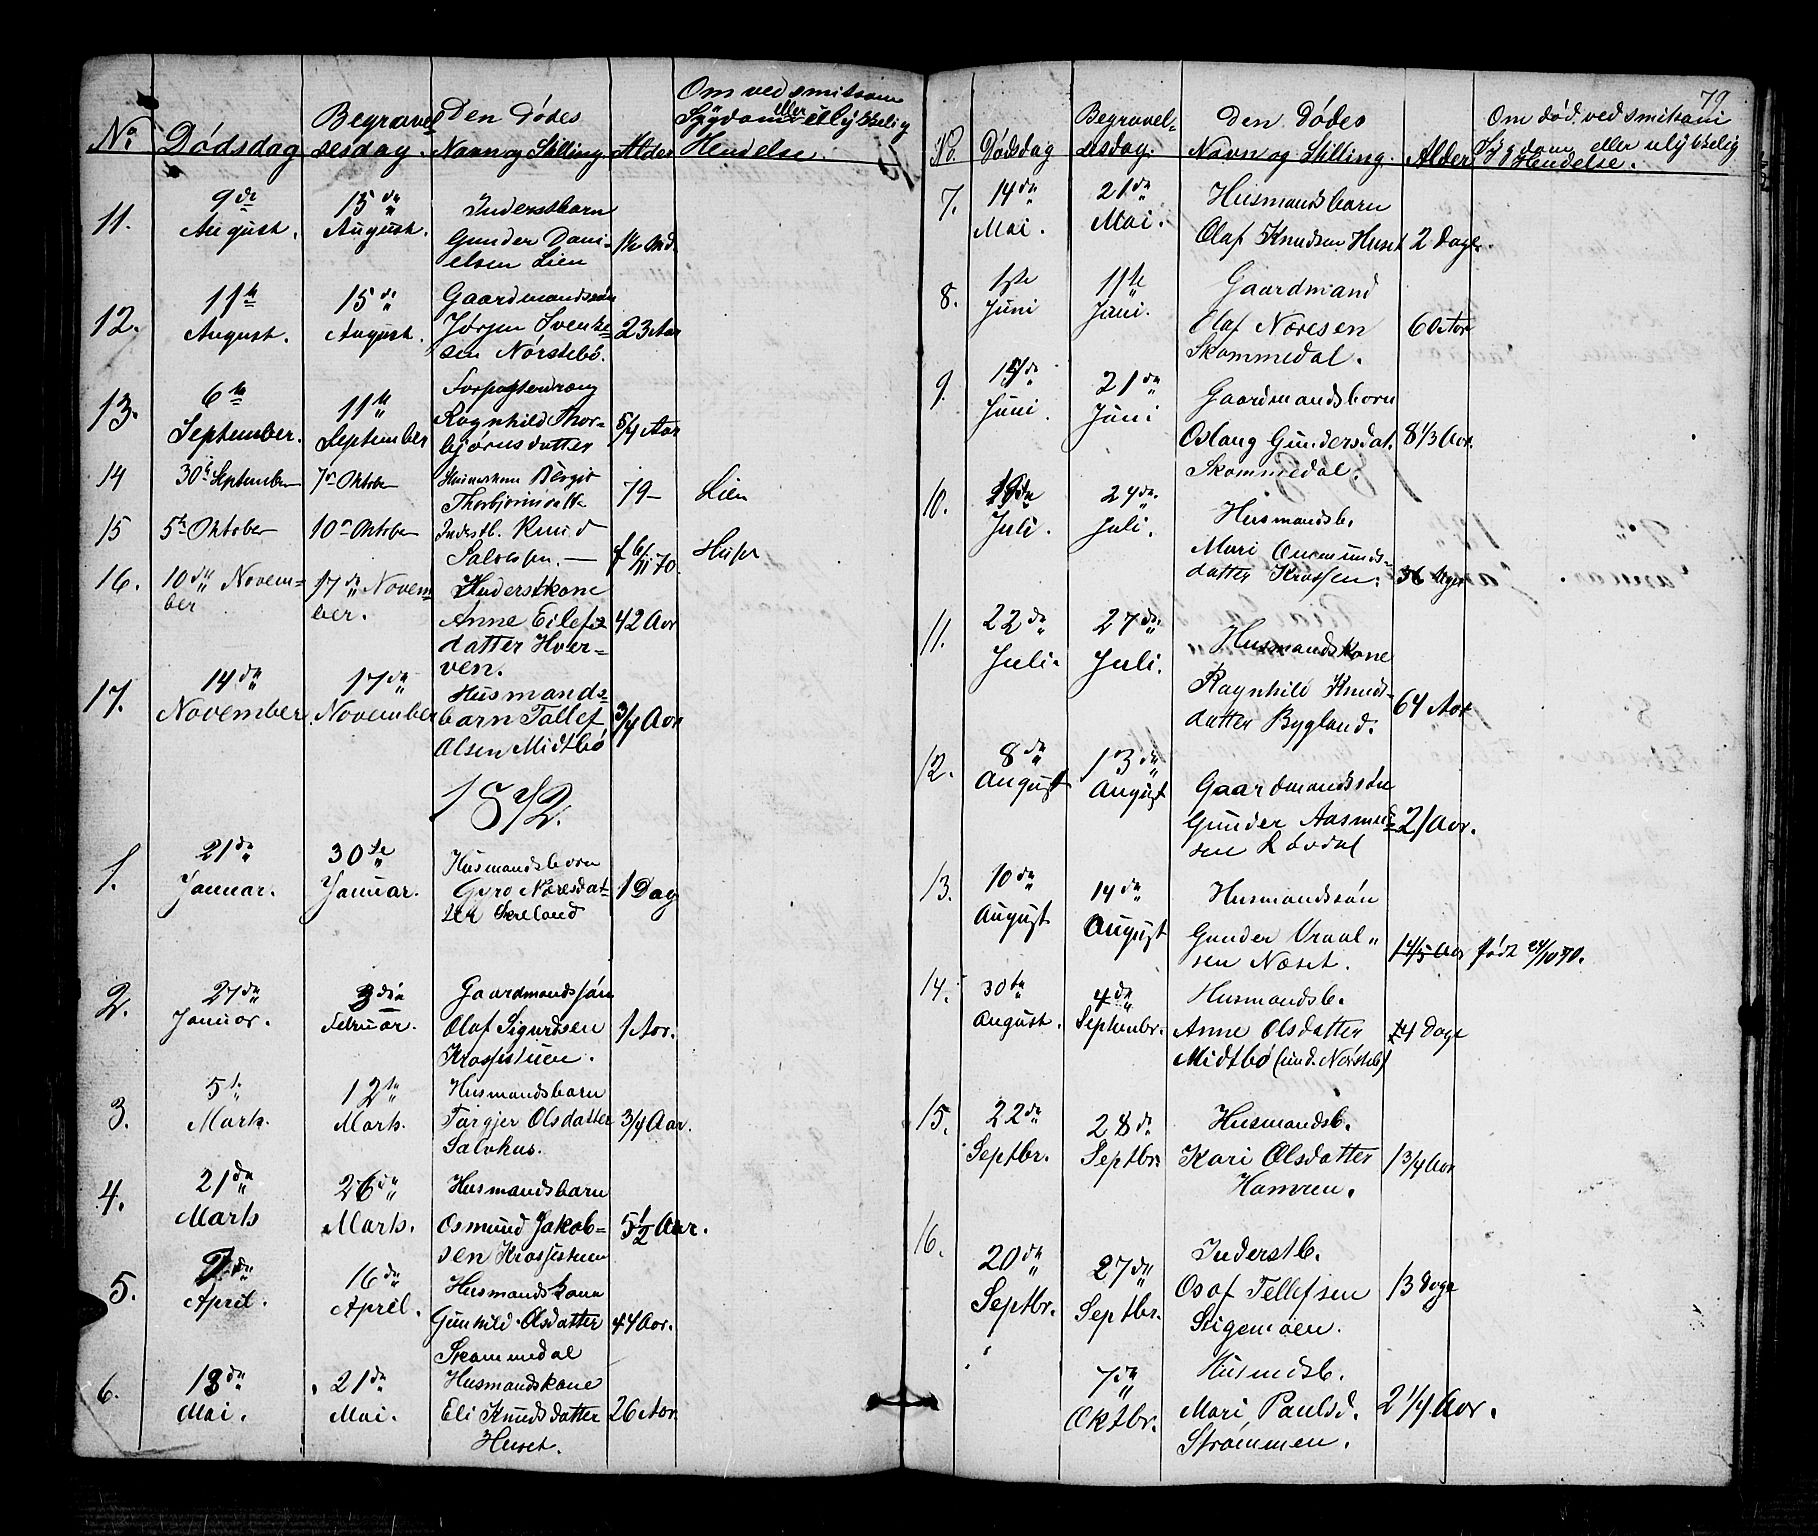 No. Dödsdag Begravel= sesdag. Den Dödes Navn og Stilling. Alder Om ved smitsom Sygdom eller ulykkelig Hendelse.
11. 9de August. 15de August. Inderstbarn
Gunder Dani=
elsen Lien
12. 11te August. 15de August. Gaardmandssön
Jörgen Svenke=
sen Nörstebö. 23 Aar
13. 6te September. 11te September
Ragnhild Thor=
björnsdatter 5/4 Aar
14 30te September 7de Oktober Birgit
Thorbjörnsdatter 79 – Lien
15 5te Oktober 10de Oktober Inderstb. Knud
Salvesen. — f 6/11 70. Huset
16. 10de Novem=
ber 17de Novem=
ber. Inderstkone
Anne Eilefs
datter Hver=
ven. 42 Aar
17. 14de November 17de November Husmands=
barn Tallef
Olsen Midtbö 3/4 Aar
1872.
1. 21de Januar. 30te Januar. Husmandsbarn
Gyro Naresdat=
ter Skreland 1 Dag
2. 27de Januar. 3die Februar. Gaardmandssön
Olaf Sigurdsen
Krossistuen. 1 Aar.
3. 5te Marts. 12te Marts. Husmandsbarn
Targjer Olsdatter 3/4 Aar.
Salvhus.
4. 21de Marts 26de Marts. Husmandsbarn
Osmund Jakob=
sen Krossistuen 5 1/2 Aar.
5. April. 16de April. Husmandskone
Gunhild Olsdatter 44 Aar.
Skammedal
6. 13de Mai. 21de Mai. Husmandskone
Eli Knudsdatter 26 Aar.
Huset.
79.
No. Dödsdag Begravel= sesdag. Den Dödes Navn og Stilling. Alder Om död ved smitsom Sygdom eller ulykkelig Hendelse.
7. 14de Mai. 21de Mai. Husmandsbarn
Olaf Knudsen Huset 2 Dage.
8. 1ste Juni 11te Juni. Gaardmand
Olaf Naresen 60 Aar
Skammedal.
9. Juni. 21de Juni Gaardmandsbarn
Oslaug Gundersdat. 8 1/3 Aar.
Skammedal.
10. Juli. 24de Juli. Husmandsb.
Mari Onmunds=
datter Krossen. Uger
11. 22de Juli. 27de Juli. Husmandskone
Ragnhild Knuds=
datter Bygland. 64 Aar
12. 8de August 13de August Gaardmandssön
Gunder Aasmund=
sen Lövdal 21 Aar.
13. 10de August 14de August Husmandssön
Gunder Vraal=
sen Næset. 1 4/5 Aar født 24/10 70.
14. 30te August. 4de Septembr. Husmandsb.
Anne Olsdatter 14 Dage
Midtbö (und. Nörsteb)
15. 22de Septbr. 28de Septbr. Husmandsb.
Kari Olsdatter 1 3/4 Aar
Hamren.
16. 20de Septbr. 27de Septbr. Inderstb.
Osof Tellefsen 13 Dage
Stigemoen.
7de Oktbr. Husmdsb.
Mari Paulsd. 2 1/4 Aar.
Strömmen.